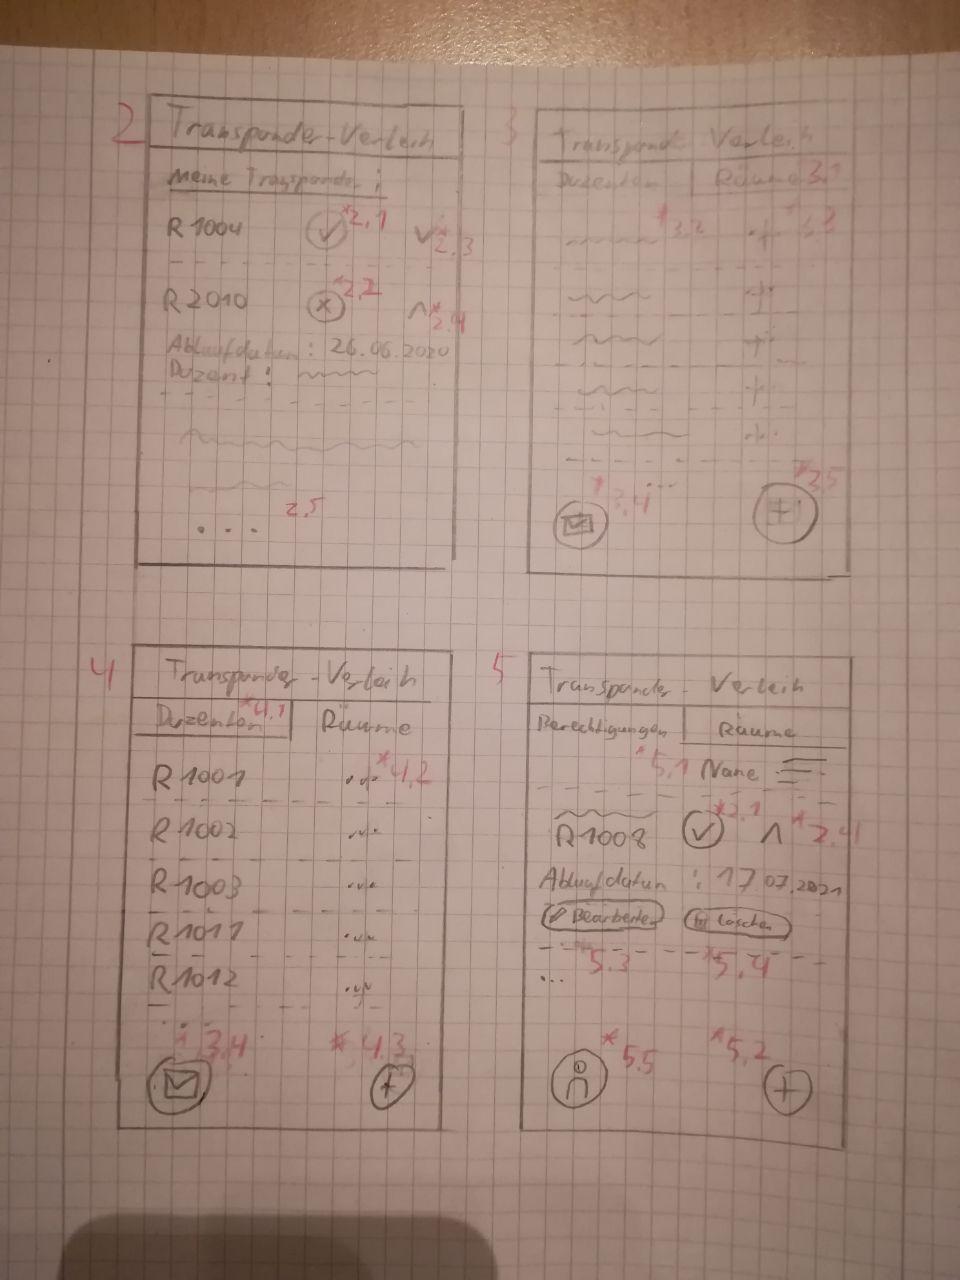 2
Transponder-Verleih
Meine Transponder:
R 1004 *2,1 *2,3
R 2010 *2,2 *2,4
Ablaufdatum: 26.06.2020
Dozent:
... 2,5
3
Transponder Verleih
Dozenten Räume 3,1
*3,2 + *3,3
+
+
+
+
...
*3,4 *3,5
+
4
Transponder-Verleih
Dozenten *4,1 Räume
R 1001 ... *4,2
R 1002 ...
R 1003 ...
R 1011 ...
R 1012 ...
...
* 3,4 * 4,3
+
5
Transponder-Verleih
Berechtigungen Räume
*5,1 Name
R 1008 *2,1 *2,4
Ablaufdatum : 17.07.2021
Bearbeiten Löschen
*5,3 *5,4
...
*5,5 *5,2
+